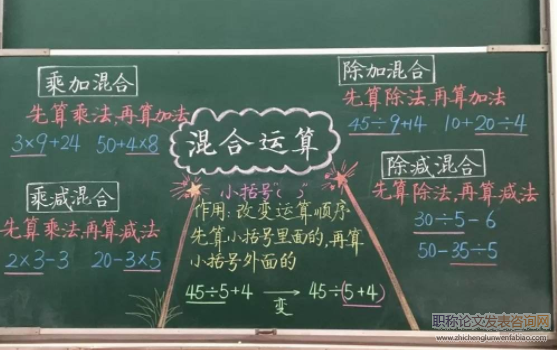 乘加混合
先算乘法,再算加法
3×9+24 50+4×8
乘减混合
先算乘法,再算减法
2×3-3 20-3×5
混合运算
小括号“( )”
作用:改变运算顺序
先算小括号里面的,再算
小括号外面的
45÷5+4 → 45÷(5+4)
变
除加混合
先算除法,再算加法
45÷9+14 10+20÷4
除减混合
先算除法,再算减法
30÷5-6
50-35÷5
职称论文发表咨询网
www.zhichenglunwenfabiao.com